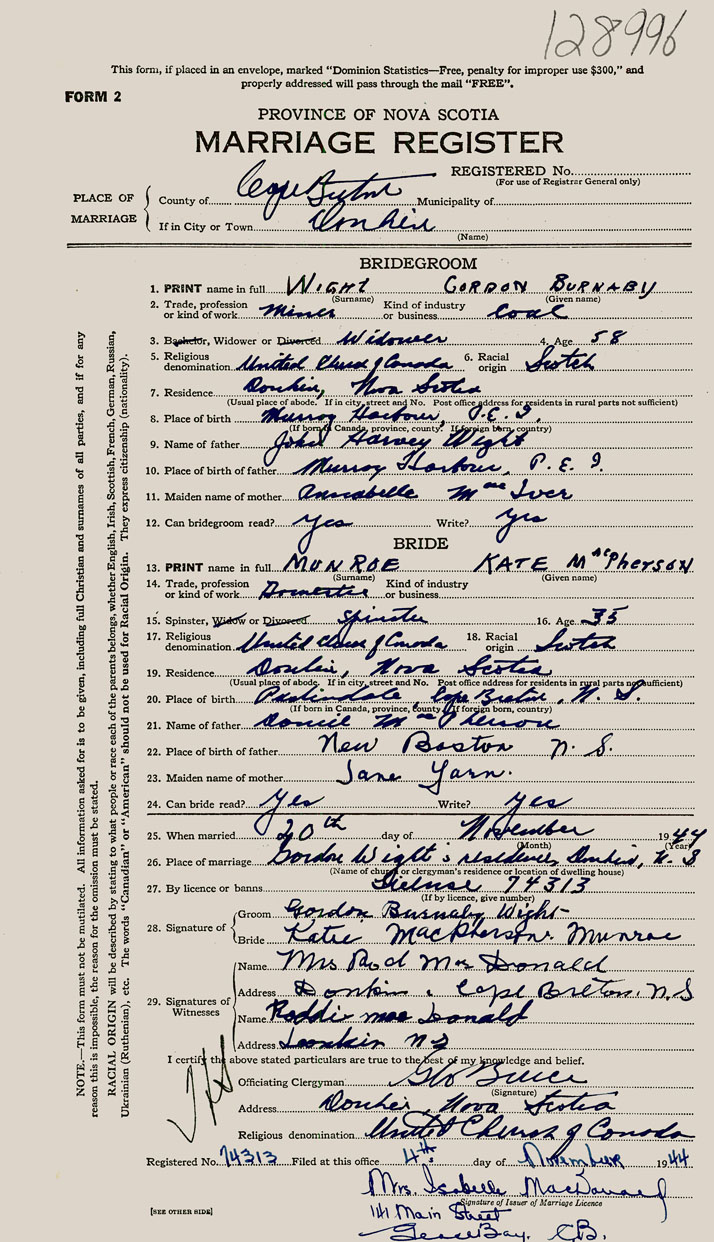 128996
This form, if placed in an envelope, marked "Dominion Statistics—Free, penalty for improper use $300," and
properly addressed will pass through the mail "FREE".
FORM 2
PROVINCE OF NOVA SCOTIA
MARRIAGE REGISTER
REGISTERED No.
(For use of Registrar General only)
PLACE OF MARRIAGE
County of Cape Breton Municipality of
If in City or Town Donkin
(Name)
BRIDEGROOM
1. PRINT name in full WIGHT GORDON BURNABY
(Surname) (Given name)
2. Trade, profession or kind of work Miner Kind of industry or business Coal
3. Bachelor, Widower or Divorced Widower 4. Age 58
5. Religious denomination United Church of Canada 6. Racial origin Scotch
7. Residence Donkin, Nova Scotia
(Usual place of abode. If in city, street and No. Post office address for residents in rural parts not sufficient)
8. Place of birth Murray Harbour, P.E.I.
(If born in Canada, province, county. If foreign born, country)
9. Name of father John Harvey Wight
10. Place of birth of father Murray Harbour, P.E.I.
11. Maiden name of mother Annabelle MacIver
12. Can bridegroom read? Yes Write? Yes
BRIDE
13. PRINT name in full MUNROE KATE MacPHERSON
(Surname) (Given name)
14. Trade, profession or kind of work Domestic Kind of industry or business
15. Spinster, Widow or Divorced Spinster 16. Age 35
17. Religious denomination United Church of Canada 18. Racial origin Scotch
19. Residence Donkin, Nova Scotia
(Usual place of abode. If in city, street and No. Post office address for residents in rural parts not sufficient)
20. Place of birth Cape Breton, N.S.
(If born in Canada, province, county. If foreign born, country)
21. Name of father MacPherson
22. Place of birth of father New Boston N.S.
23. Maiden name of mother Jane Yarn.
24. Can bride read? Yes Write? Yes
25. When married 20th day of November 1944
(Month) (Year)
26. Place of marriage Gordon Wight's residence, Donkin, N.S
(Name of church or clergyman's residence or location of dwelling house)
27. By licence or banns License 74313
(If by licence, give number)
28. Signature of
Groom Gordon Burnaby Wight
Bride Katie MacPherson Munroe
29. Signatures of Witnesses
Name Mrs Rod MacDonald
Address Donkin, Cape Breton, N.S
Name Roddie MacDonald
Address Donkin NS
I certify the above stated particulars are true to the best of my knowledge and belief.
Officiating Clergyman Geo Bruce
(Signature)
Address Donkin, Nova Scotia
Religious denomination United Church of Canada
Registered No. 74313 Filed at this office 4th day of November 1944
Mrs. Isabelle
Signature of Issuer of Marriage Licence
141 Main Street
Glace Bay, C.B.
[SEE OTHER SIDE]
NOTE.—This form must not be mutilated. All information asked for is to be given, including full Christian and surnames of all parties, and if for any
reason this is impossible, the reason for the omission must be stated.
RACIAL ORIGIN will be described by stating to what people or race each of the parents belongs, whether English, Irish, Scottish, French, German, Russian,
Ukrainian (Ruthenian), etc. The words "Canadian" or "American" should not be used for Racial Origin. They express citizenship (nationality).